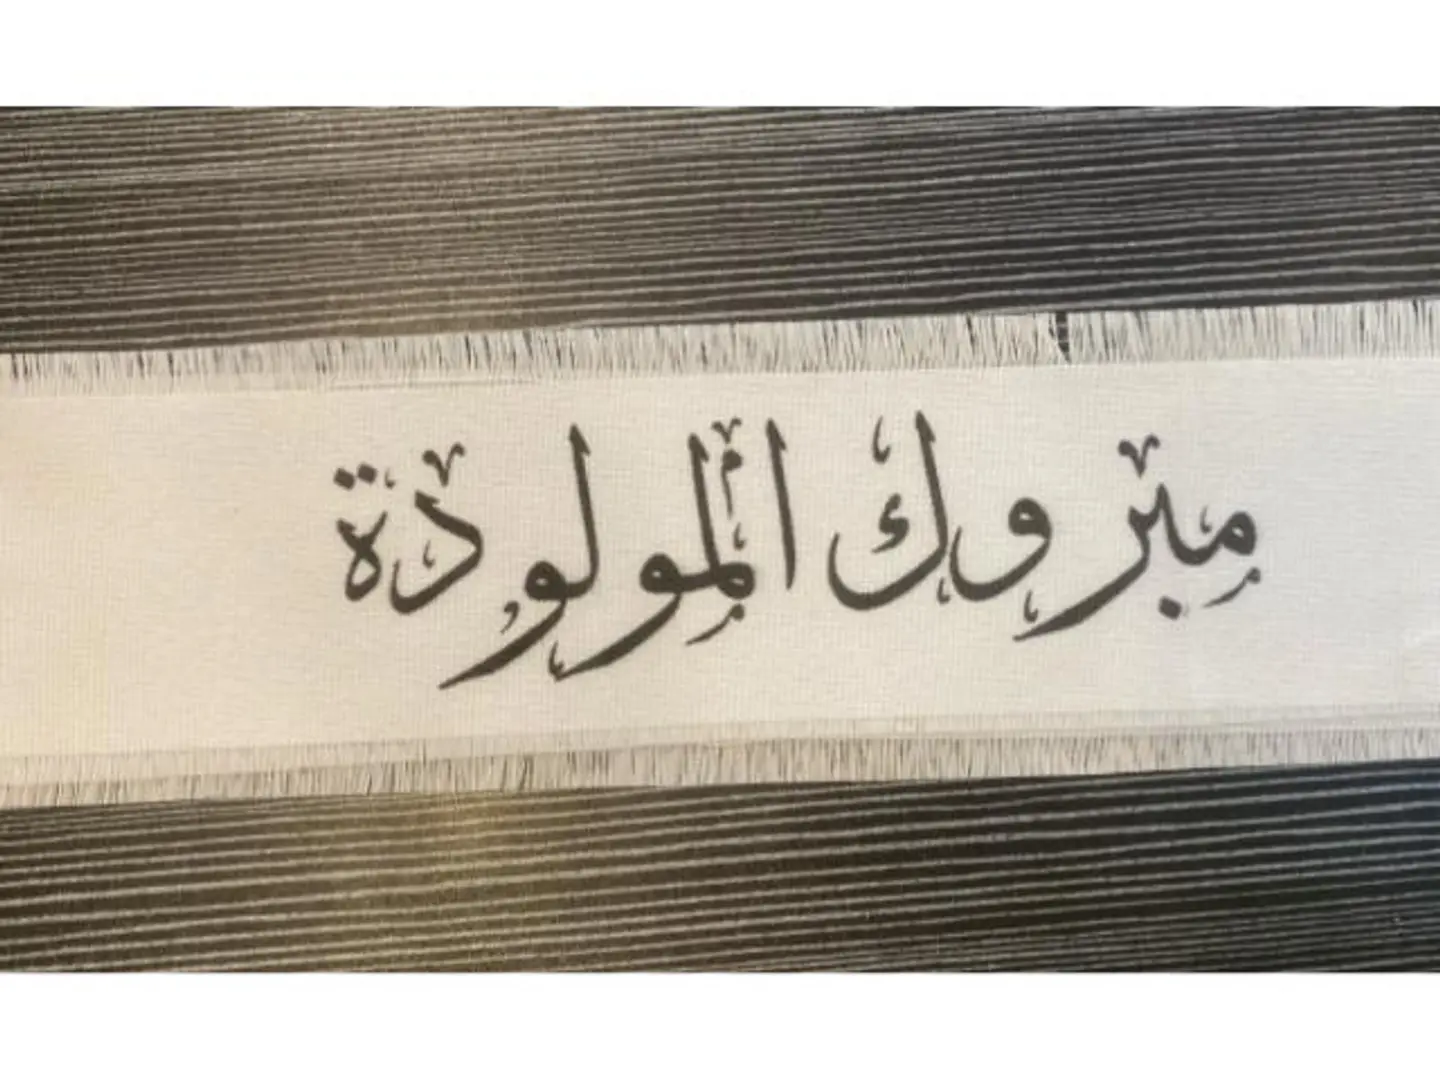 مبروك المولودة